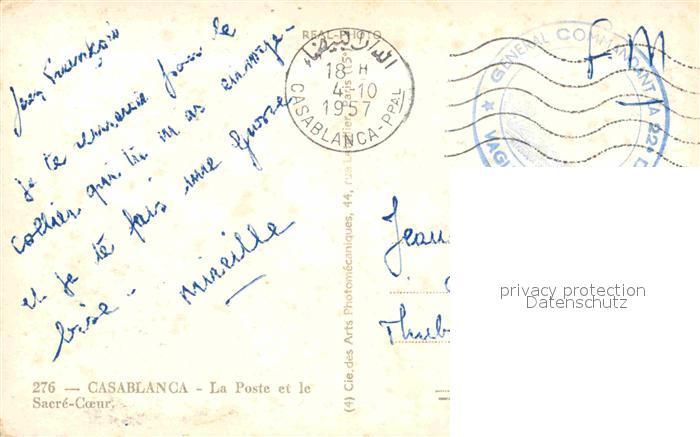 REAL-PHOTO
Jean François
je te remercie pour le
collier que tu m as envoyé-
et je te fais une grosse
bise -
mireille
الدار البيضاء
18 H
4-10
1957
CASABLANCA-PPAL
FM
★ GENERAL COMMANDANT LA 22e
Jean
(4) Cie. des Arts Photomécaniques, 44, rue Letellier, Paris (15e)
privacy protection
Datenschutz
276 — CASABLANCA - La Poste et le
Sacré-Cœur.